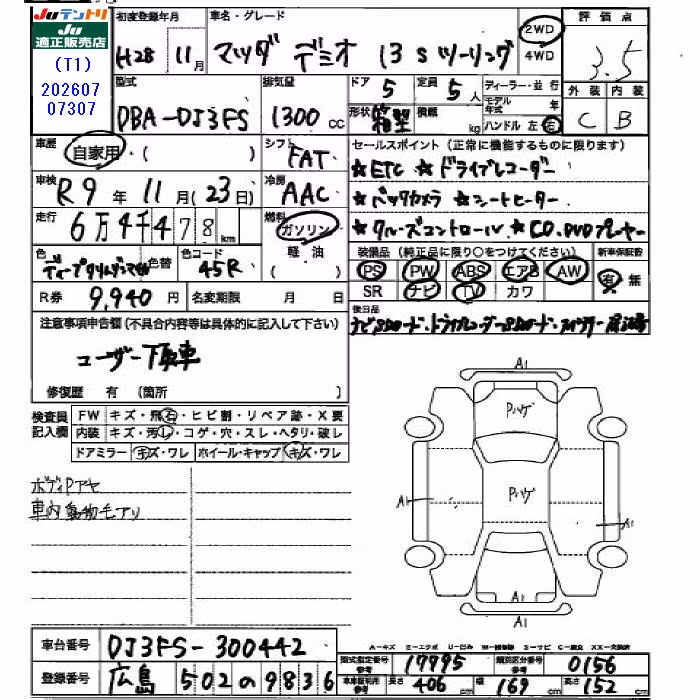 Juテントリ
Ju
適正販売店
(T1)
202607
07307
初度登録年月 車名・グレード
H28 11月 マツダ デミオ 13Sツーリング
2WD
4WD
評価点
3.5
外装 内装
C B
型式 排気量 ドア 定員 ディーラー・並行
DBA-DJ3FS 1300cc 5 5人
モデル年式 年
形状 箱型 積載 kg ハンドル 左 右
車歴 自家用・( )
シフト FAT
セールスポイント (正常に機能するものに限ります)
☆ETC ☆ドライブレコーダー
車検 R9年11月(23日)
冷房 AAC
☆バックカメラ ☆シートヒーター
走行 6万4千478km
燃料 ガソリン
軽・油
( )
☆クルーズコントロール ☆CD.DVDプレーヤー
色 色替 色コード 45R
装備品 (純正品に限り○をつけてください) 新車保証書
PS PW ABS エアB AW 有・無
SR ナビ TV カワ
R券 9,940円 名変期限 月 日
後日品
ナビSDカード・ドライブレコーダーSDカード・
注意事項申告欄(不具合内容等は具体的に記入して下さい)
ユーザー下取車
修復歴 有 (箇所 )
検査員記入欄
FW キズ・飛石・ヒビ割・リペア跡・X要
内装 キズ・汚レ・コゲ・穴・スレ・ヘタリ・破レ
ドアミラー キズ・ワレ ホイール・キャップ キズ・ワレ
ボディPアセ
車内動物毛アリ
A1
Pハゲ
Pハゲ
A1
A1
A1
車台番号 DJ3FS-300442
登録番号 広島 502の9836
型式指定番号 参考 17795 類別区分番号 参考 0156
車両諸元用 参考 長さ 406cm 幅 169cm 高さ 152cm